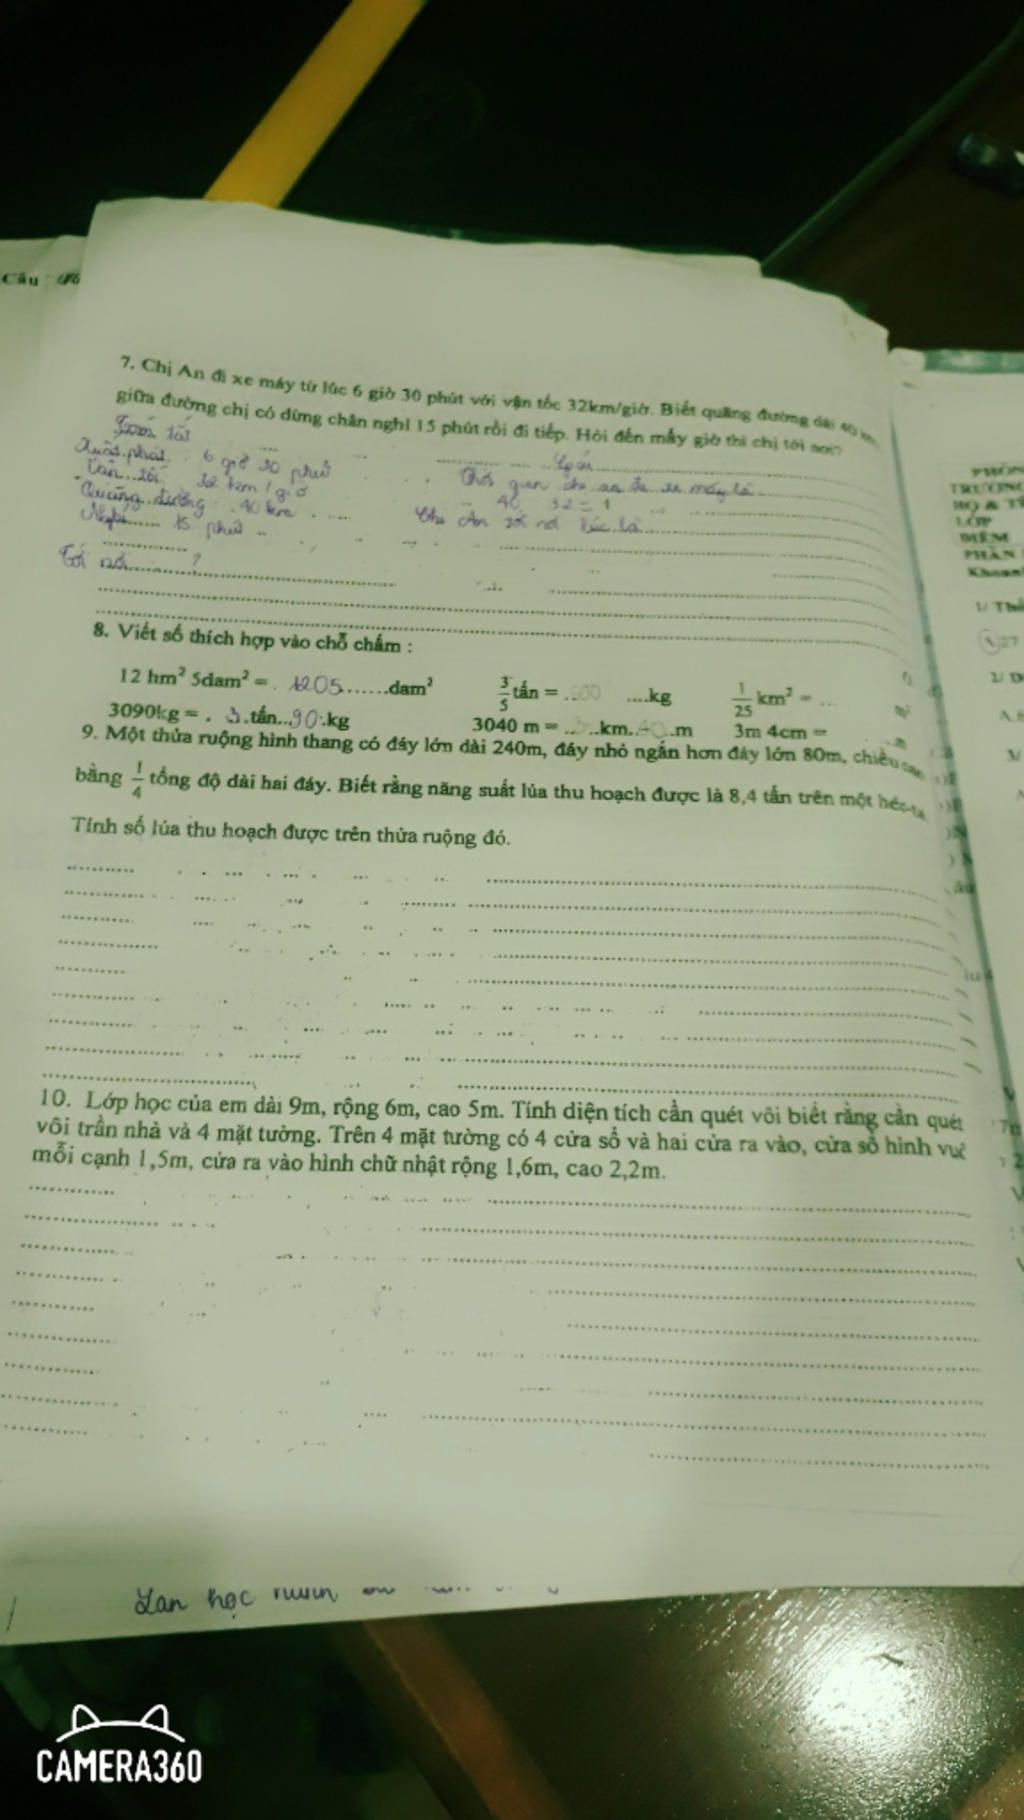 Câu :
7. Chị An đi xe máy từ lúc 6 giờ 30 phút với vận tốc 32km/giờ. Biết quãng đường dài 40 km
giữa đường chị có dừng chân nghỉ 15 phút rồi đi tiếp. Hỏi đến mấy giờ thì chị tới nơi?
Tóm tắt
Xuất phát : 6 giờ 30 phút
Vận tốc 32 km / giờ
Quãng đường : 40 km
Nghỉ 15 phút
Tới nơi ?
Thời gian chị an đi xe máy là
40 32 = 1
Chị An tới nơi lúc là
8. Viết số thích hợp vào chỗ chấm :
12 hm² 5dam² = 1205 dam² 3/5 tấn = 600 kg 1/25 km² = ... m²
3090kg = . 3 tấn 90 kg 3040 m = 3 km 40 m 3m 4cm = m
9. Một thửa ruộng hình thang có đáy lớn dài 240m, đáy nhỏ ngắn hơn đáy lớn 80m, chiều cao
bằng 1/4 tổng độ dài hai đáy. Biết rằng năng suất lúa thu hoạch được là 8,4 tấn trên một héc-ta
Tính số lúa thu hoạch được trên thửa ruộng đó.
10. Lớp học của em dài 9m, rộng 6m, cao 5m. Tính diện tích cần quét vôi biết rằng cần quét
vôi trần nhà và 4 mặt tường. Trên 4 mặt tường có 4 cửa sổ và hai cửa ra vào, cửa sổ hình vuô
mỗi cạnh 1,5m, cửa ra vào hình chữ nhật rộng 1,6m, cao 2,2m.
Lan học
PHÒN
TRƯỜNG
HỌ & TÊ
LỚP
ĐIỂM
PHẦN
Khoanh
CAMERA360